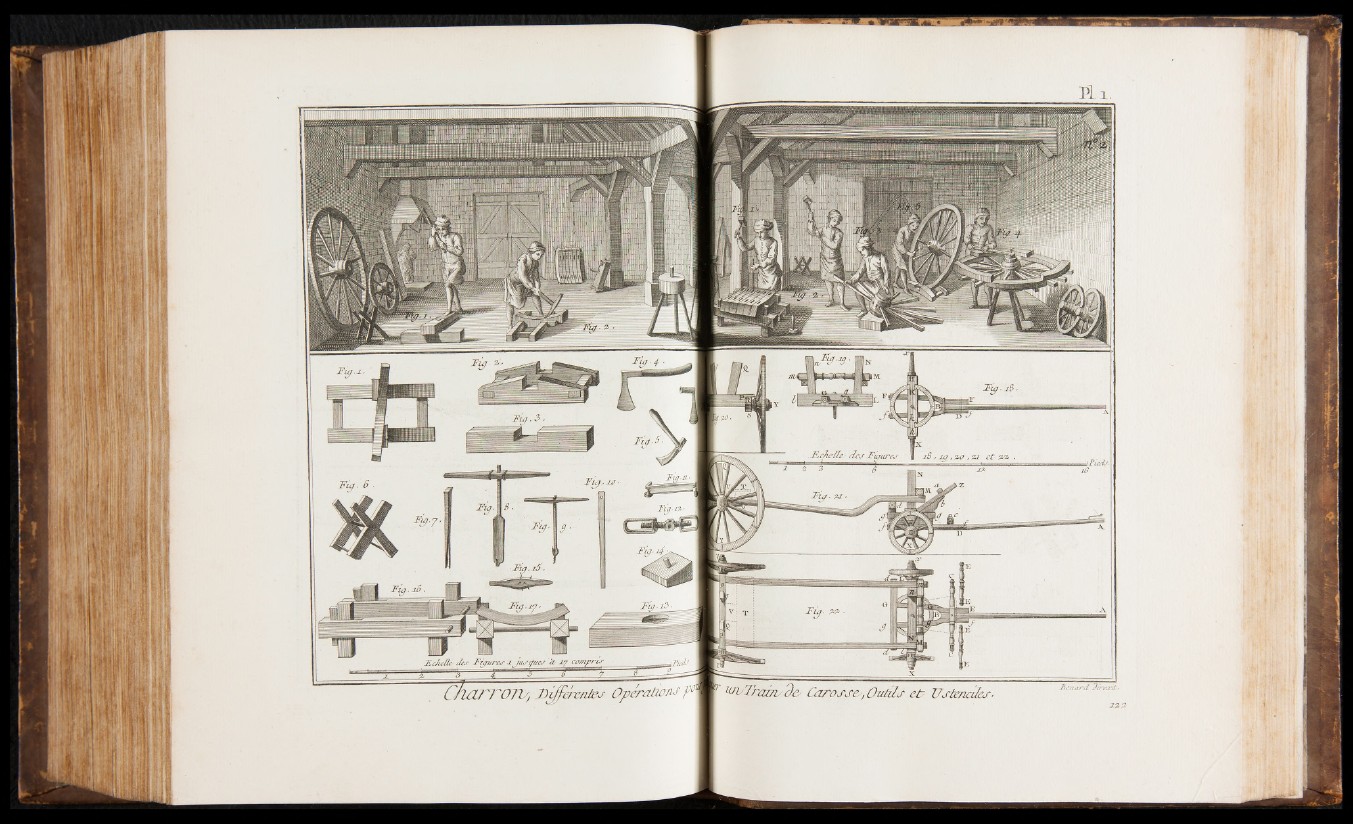 Pl. 1.
n.° 2
Fig. 1.
Fig. 2.
Fig. 1.
Fig. 2.
Fig. 3
Fig. 6
Fig. 4
Fig. 1.
Fig. 2.
Fig. 3.
Fig. 4.
Fig. 5.
Fig. 6
Fig. 7.
Fig. 8.
Fig. 9.
Fig. 10.
Fig. 11.
Fig. 12.
Fig. 14.
Fig. 15.
Fig. 16.
Fig. 17.
Fig. 13
Echelle des Figures 1 jusques à 17 compris
1 2 3 4 5 6 7 8 9 Pieds
Q
S Y
20.
Fig. 19.
n N
m M
l L
Fig. 18.
F
B D A
X
Echelle des Figures 18, 19, 20, 21 et 22.
1 2 3 6 12 18 Pieds
T
Fig. 21.
N
M a Z
b
g c
f D A
Y X
Fig. 22.
V T
G
g
N M
B E A
E
X
Charron, Différentes Opérations pour un Train de Carosse, Outils et Ustenciles.
Benard Direxit.
122